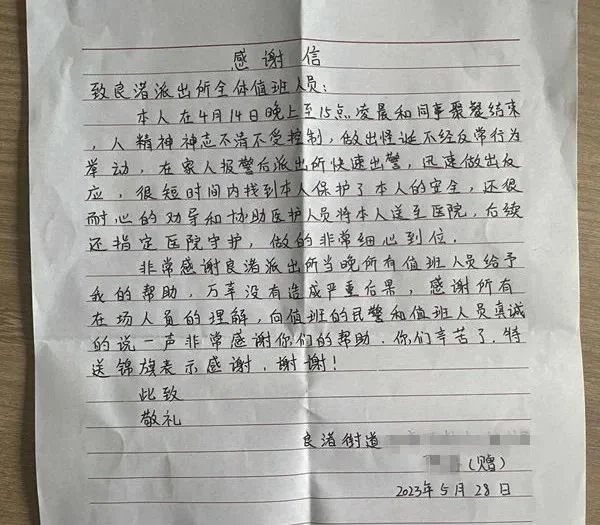 感谢信
致良渚派出所全体值班人员:
本人在4月14日晚上至15点凌晨和同事聚餐结束
,人精神神志不清不受控制,做出怪诞不经反常行为
举动,在家人报警后派出所快速出警,迅速做出反
应,很短时间内找到本人保护了本人的安全,还很
耐心的劝导和协助医护人员将本人送至医院,后续
还指定医院守护,做的非常细心到位.
非常感谢良渚派出所当晚所有值班人员给予
我的帮助,万幸没有造成严重后果,感谢所有
在场人员的理解,向值班的民警和值班人员真诚
的说一声非常感谢你们的帮助.你们辛苦了.特
送锦旗表示感谢.谢谢!
此致
敬礼
良渚街道
(赠)
2023年5月28日